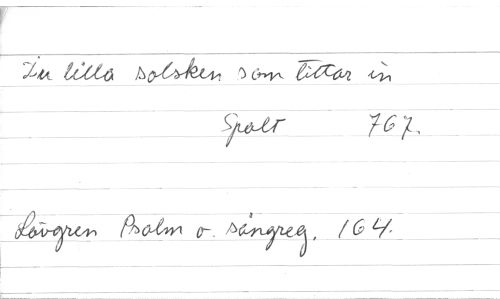 Du lilla solsken som tittar in
Spalt 767.
Lövgren Psalm o. sångreg. 164.